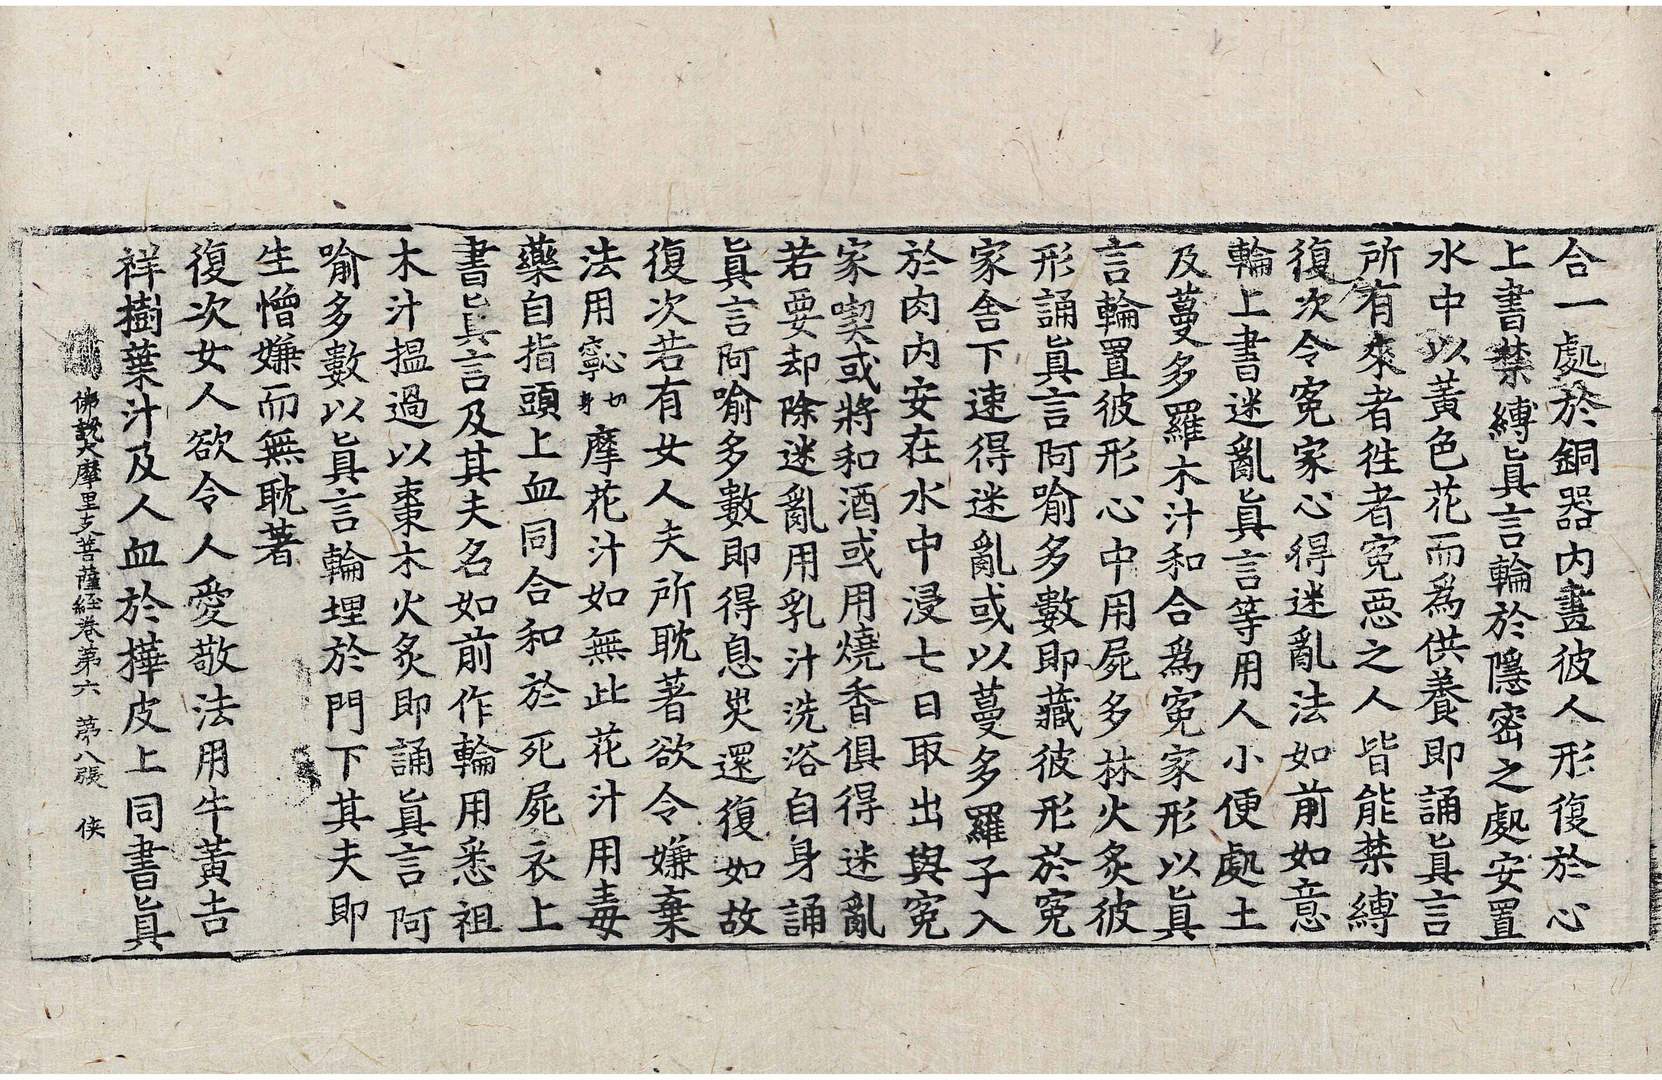 合一處於銅器内畫彼人形復於心
上書禁縛眞言輪於隱密之處安置
水中以黃色花而爲供養即誦眞言
所有來者徃者寃惡之人皆能禁縛
復次令寃家心得迷亂法如前如意
輪上書迷亂眞言等用人小便處土
及蔓多羅木汁和合爲寃家形以眞
言輪置彼形心中用屍多林火炙彼
形誦眞言阿喻多數即藏彼形於寃
家舍下速得迷亂或以蔓多羅子入
於肉内安在水中浸七日取出與寃
家喫或將和酒或用燒香俱得迷亂
若要却除迷亂用乳汁洗浴自身誦
眞言阿喻多數即得息災還復如故
復次若有女人夫所耽著欲令嫌棄
法用寧心切身摩花汁如無此花汁用毒
藥自指頭上血同合和於死屍衣上
書眞言及其夫名如前作輪用悉祖
木汁搵過以棗木火炙即誦眞言阿
喻多數以眞言輪埋於門下其夫即
生憎嫌而無耽著
復次女人欲令人愛敬法用牛黃吉
祥樹葉汁及人血於樺皮上同書眞
佛說大摩里支菩薩經卷第六 第八張 俠